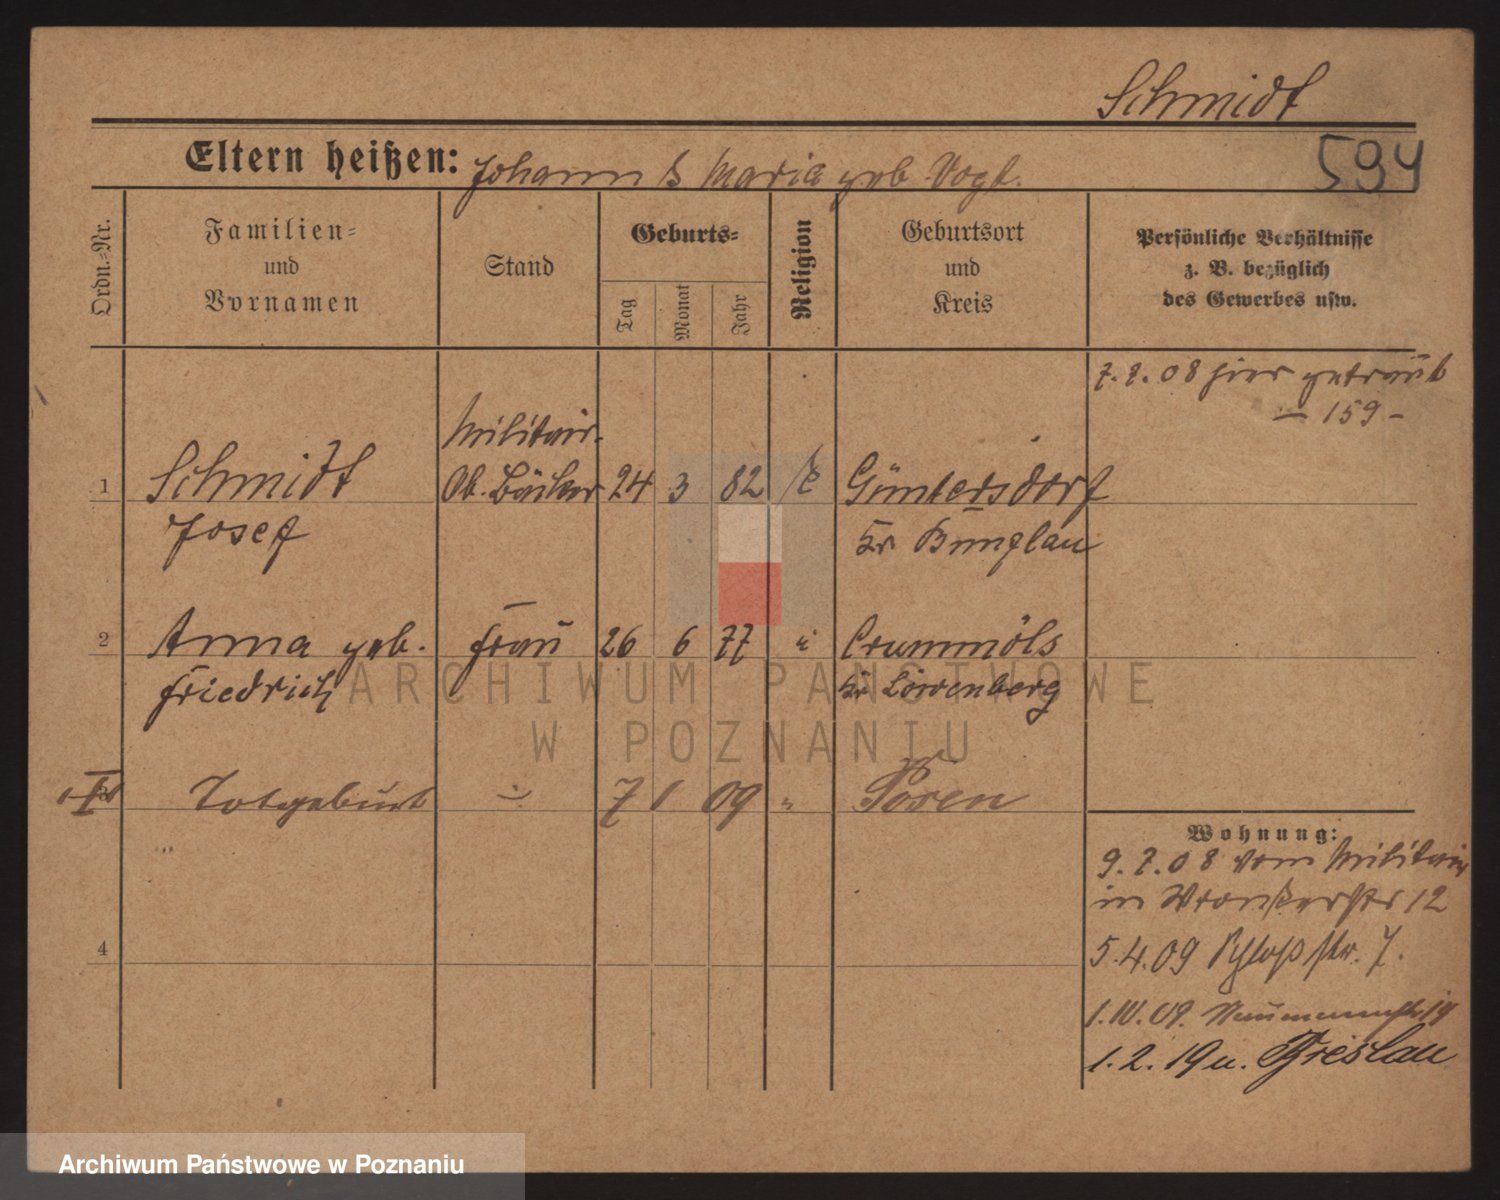 Schmidt
594
Eltern heißen: Johann S Maria geb Vogt.
Ordn.-Nr.
Familien-
und
Vornamen
Stand
Geburts-
Tag
Monat
Jahr
Religion
Geburtsort
und
Kreis
Persönliche Verhältnisse
z. B. bezüglich
des Gewerbes usw.
7. 7. 08 hier getraut
– 159 –
Militair-
1 Schmidt Ob. Bäcker 24 3 82 k Güntersdorf
Josef Kr Bunzlau
2 Anna geb. Frau 26 6 77 " Crummöls
Friedrich Kr Löwenberg
I Totgeburt – 7 1 09 " Posen
Wohnung:
9. 7. 08 vom Militair
in Wronkerstr 12
4
5. 4. 09 Schloßstr. 7.
1. IV. 09. Naumannstr 19
1. 2. 19 n. Breslau
ARCHIWUM PAŃSTWOWE
W POZNANIU
Archiwum Państwowe w Poznaniu